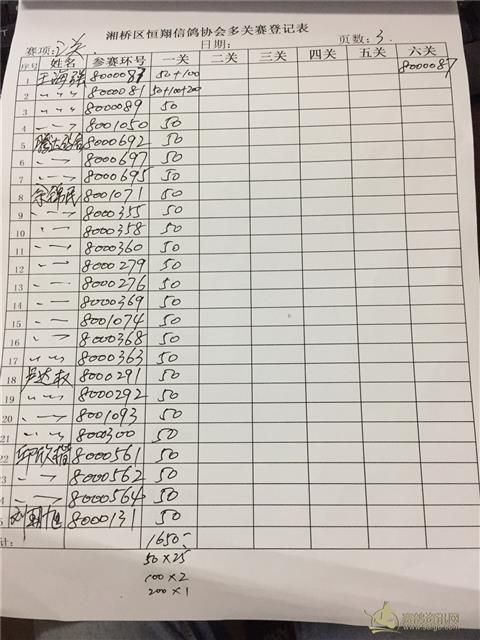 湘桥区恒翔信鸽协会多关赛登记表
赛项: 2关 日期: 页数: 3
序号 姓名 参赛环号 一关 二关 三关 四关 五关 六关
1 王海强 8000087 50+100 8000087
2 〃 〃 8000081 50+100+200
3 〃 〃 8000089 50
4 8001050 50
5 8000692 50
6 8000697 50
7 8000695 50
8 余锦民 8001071 50
9 8000355 50
10 8000358 50
11 8000360 50
12 8000279 50
13 8000276 50
14 8000369 50
15 8001074 50
16 8000368 50
17 〃 〃 8000363 50
18 8000291 50
19 〃 〃 8000292 50
20 8001093 50
21 〃 〃 8000300 50
22 8000561 50
3 8000562 50
4 8000564 50
5 8000131 50
计: 1650-
50×25
100×2
200×1
赛鸽资讯网